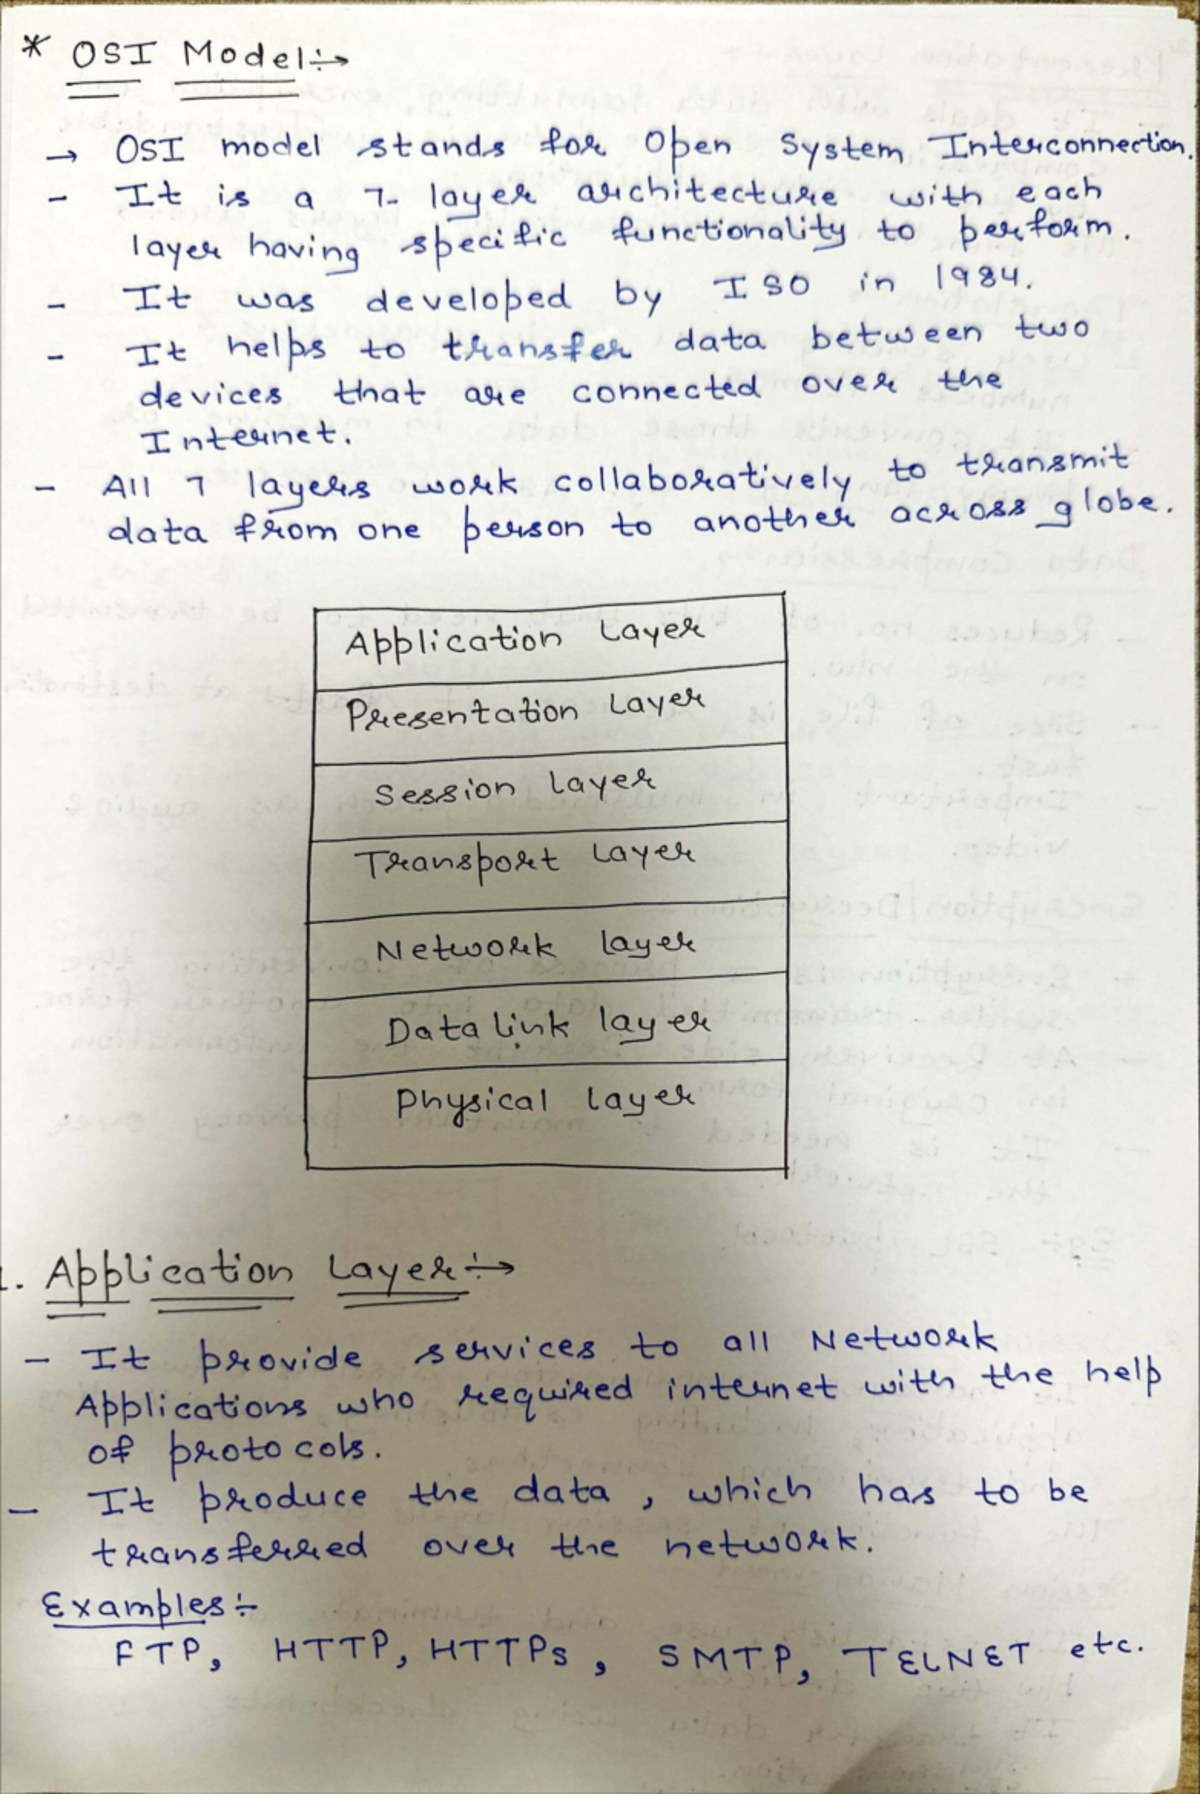 * OSI Model ÷→
→ OSI model stands for Open System Interconnection.
- It is a 7- layer architecture with each
layer having specific functionality to perform.
- It was developed by ISO in 1984.
- It helps to transfer data between two
devices that are connected over the
Internet.
- All 7 layers work collaboratively to transmit
data from one person to another across globe.
Application Layer
Presentation Layer
Session Layer
Transport Layer
Network layer
Data link layer
Physical layer
1. Application Layer ÷→
- It provide services to all Network
Applications who required internet with the help
of protocols.
- It produce the data, which has to be
transferred over the network.
Examples ÷
FTP, HTTP, HTTPs, SMTP, TELNET etc.